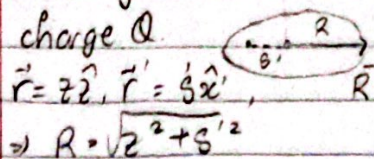 charge Q
R
s'
r⃗ = zẑ, r⃗' = s'x̂',
R⃗
⇒ R = √z² + s'²